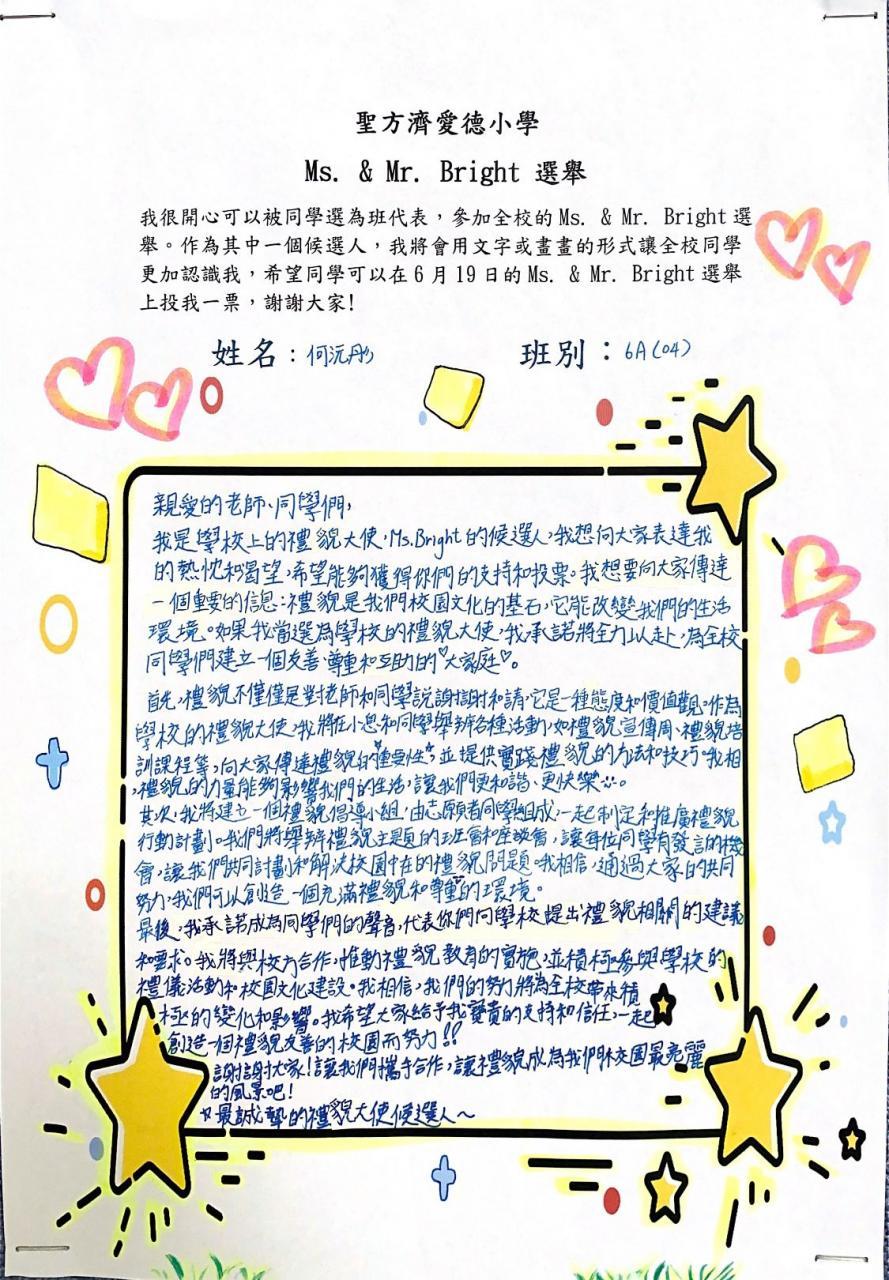 聖方濟愛德小學
Ms. & Mr. Bright 選舉
我很開心可以被同學選為班代表，參加全校的Ms. & Mr. Bright 選
舉。作為其中一個候選人，我將會用文字或畫畫的形式讓全校同學
更加認識我，希望同學可以在6月19日的Ms. & Mr. Bright 選舉
上投我一票，謝謝大家!
姓名：何沅彤 班別：6A(04)
親愛的老師、同學們，
我是學校上的禮貌大使，Ms.Bright的候選人，我想向大家表達我
的熱忱和渴望，希望能夠獲得你們的支持和投票。我想要向大家傳達
一個重要的信息：禮貌是我們校園文化的基石，它能改變我們的生活
環境。如果我當選為學校的禮貌大使，我承諾將全力以赴，為全校
同學們建立一個友善、尊重和互助的♡大家庭♡。
首先，禮貌不僅僅是對老師和同學說謝謝和請，它是一種態度和價值觀。作為
學校的禮貌大使，我將在小息和同學舉辦各種活動，如禮貌宣傳周、禮貌培
訓課程等，向大家傳達禮貌的"重要性"，並提供實踐禮貌的方法和技巧。我相
，禮貌的力量能夠影響我們的生活，讓我們更和諧、更快樂。
其次，我將建立一個禮貌倡導小組，由志願者同學組成，一起制定和推廣禮貌
行動計劃。我們將舉辦禮貌主題的班會和座談會，讓每位同學有發言的機
會，讓我們共同計劃和解決校園中存在的禮貌問題。我相信，通過大家的共同
努力，我們可以創造一個充滿禮貌和尊重的環境。
最後，我承諾成為同學們的聲音，代表你們向學校提出禮貌相關的建議
和要求。我將與校方合作，推動禮貌教育的實施，並積極參與學校的
禮儀活動和校園文化建設。我相信，我們的努力將為全校帶來積
極的變化和影響。我希望大家給予我寶貴的支持和信任，一起
創造一個禮貌友善的校園而努力!!
謝謝大家！讓我們攜手合作，讓禮貌成為我們校園最亮麗
的風景吧！
最誠摯的禮貌大使候選人～